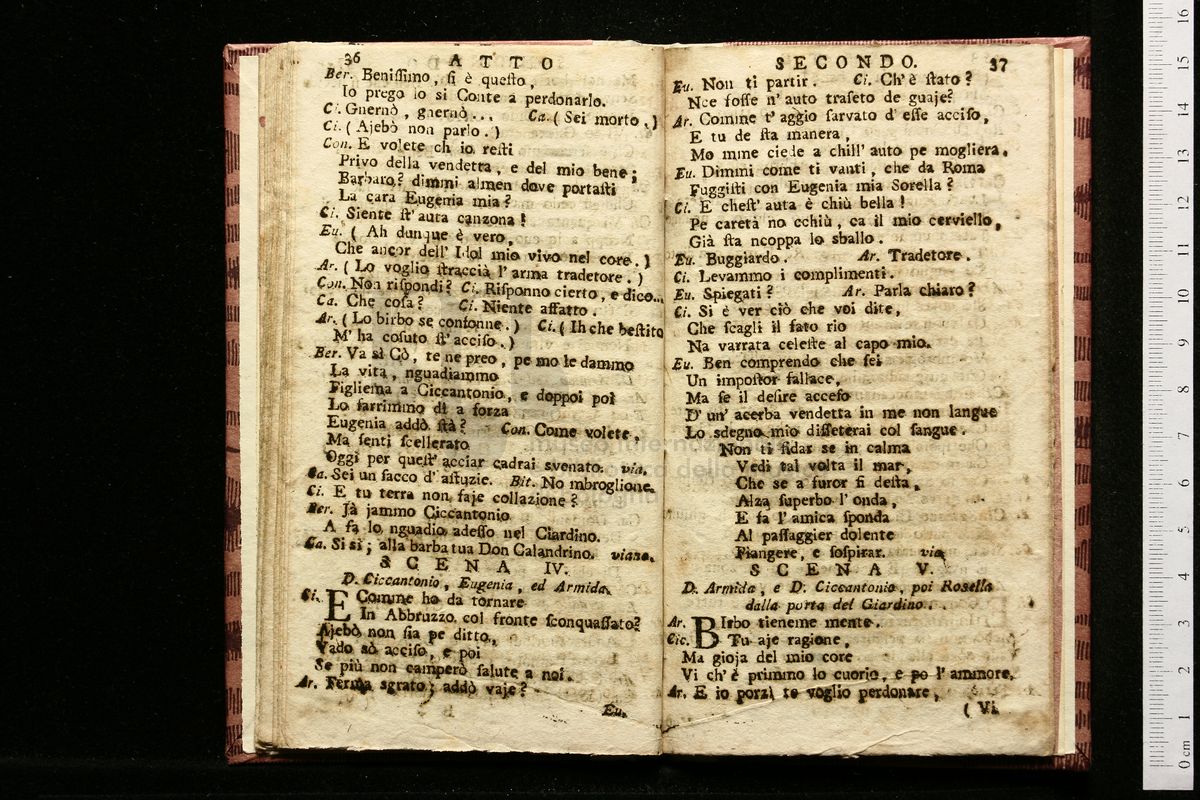 36 ATTO
Ber. Benissimo, si è questo,
Io prego lo si Conte a perdonarlo.
Ci. Gnernò, gnernò... Ca. (Sei morto.)
Ci. (Ajebò non parlo.)
Con. E volete ch io resti
Privo della vendetta, e del mio bene;
Barbaro? dimmi almen dove portasti
La cara Eugenia mia?
Ci. Siente st'auta canzona!
Eu. (Ah dunque è vero,
Che ancor dell'Idol mio vivo nel core.)
Ar. (Lo voglio straccià l'arma tradetore.)
Con. Non rispondi? Ci. Risponno cierto, e dico...
Ca. Che cosa? Ci. Niente affatto.
Ar. (Lo birbo se confonne.) Ci. (Ih che bestito
M'ha cosuto st'acciso.)
Ber. Va sì Cò, te ne preo, pe mo le dammo
La vita, nguadiammo
Figliema a Ciccantonio, e doppoi poi
Lo farrimmo dì a forza
Eugenia addò stà? Con. Come volete,
Ma senti scellerato
Oggi per quest'acciar cadrai svenato. via.
Ca. Sei un sacco d'astuzie. Bit. No mbroglione.
Ci. E tu terra non faje collazione?
Ber. Jà jammo Ciccantonio
A fa lo nguadio adesso nel Ciardino.
Ca. Si si; alla barba tua Don Calandrino. viano.
SCENA IV.
D. Ciccantonio, Eugenia, ed Armida.
Ci. E Comme ho da tornare
In Abbruzzo col fronte sconquassato?
Ajebò non sia pe ditto,
Vado sò acciso, e poi
Se più non camperò salute a noi.
Ar. Ferma sgrato; addò vaje?
Eu.
SECONDO. 37
Eu. Non ti partir. Ci. Ch'è stato?
Nce fosse n'auto traseto de guaje?
Ar. Comme t'aggio sarvato d'esse acciso,
E tu de sta manera,
Mo mme ciede a chill'auto pe mogliera.
Eu. Dimmi come ti vanti, che da Roma
Fuggisti con Eugenia mia Sorella?
Ci. E chest'auta è chiù bella!
Pe caretà no cchiù, ca il mio cerviello,
Già sta ncoppa lo sballo.
Eu. Buggiardo. Ar. Tradetore.
Ci. Levammo i complimenti.
Eu. Spiegati? Ar. Parla chiaro?
Ci. Si è ver ciò che voi dite,
Che scagli il fato rio
Na varrata celeste al capo mio.
Eu. Ben comprendo che sei
Un impostor fallace,
Ma se il desire acceso
D'un'acerba vendetta in me non langue
Lo sdegno mio disseterai col sangue.
Non ti fidar se in calma
Vedi tal volta il mar,
Che se a furor si desta,
Alza superbo l'onda,
E fa l'amica sponda
Al passaggier dolente
Piangere, e sospirar. via
SCENA V.
D. Armida, e D. Ciccantonio, poi Rosella
dalla porta del Giardino.
Ar. BIrbo tieneme mente.
Cic. Tu aje ragione,
Ma gioja del mio core
Vi ch'è primmo lo cuorio, e po l'ammore.
Ar. E io porzì te voglio perdonare,
( Vi